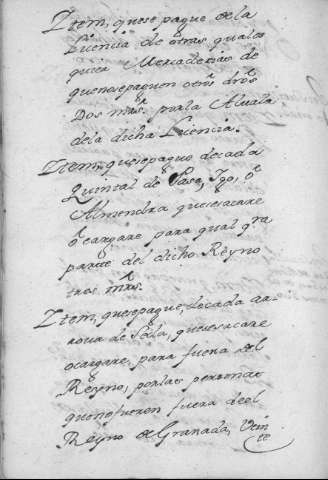 Ytem, que se pague de la
Licencia de otras quales
quier Mercaderias de
que no se paguen otros dros
Dos mrs. por la Alvala
de la dicha Licencia.
Ytem, que se pague de cada
Quintal de Pasa, Igo, o
Almendra que se sacare
o cargare para qualqra
parte del dicho Reyno
tres mrs.
Ytem, que se pague, de cada ar-
rova de Seda, que se sacare
o cargare, para fuera del
Reyno, por las personas
que no fueren fuera del
Reyno de Granada, Vein
te